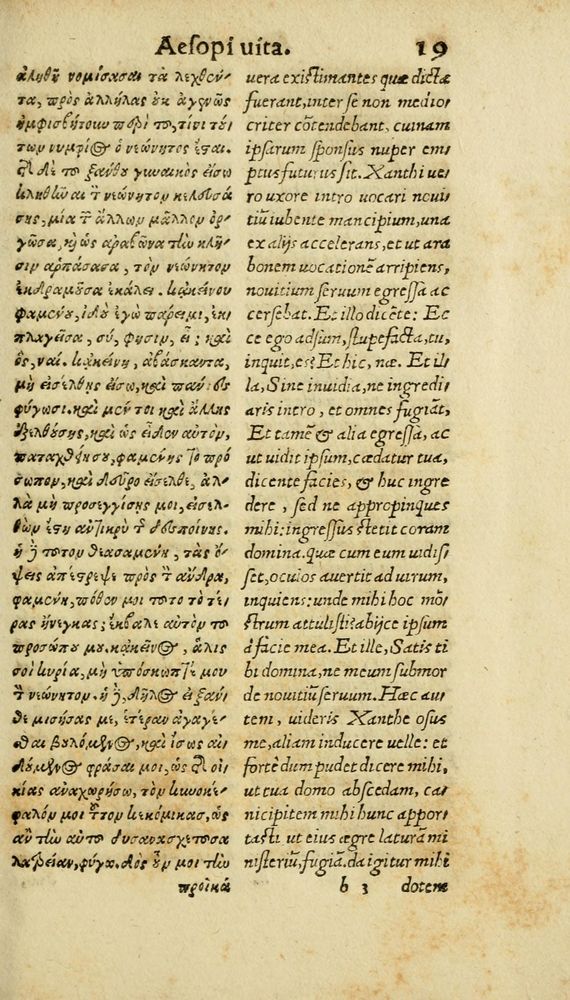 Aesopi uita. 19
ἀληθῆ νομίσασαι τὰ λεχθέν-
τα, πρὸς ἀλλήλας οὐκ ἀγεννῶς
ἠμφισβήτουν περὶ τούτου, τίνι τού-
των νυμφίος ὁ νεώνητος ἔσται.
τῆς δὲ τοῦ ξάνθου γυναικὸς εἴσω
κληθῆναι τὸν νεώνητον κελευσά-
σης, μία τῶν ἄλλων μᾶλλον ὀρ-
γῶσα, καὶ ὡς ἀραβῶνα τὴν κλῆ-
σιν ἁρπάσασα, τὸν νεώνητον
ἐκδραμοῦσα ἐκάλει. κἀκείνου
φαμένου, ἰδοὺ ἐγὼ πάρειμι, ἐκ-
πλαγεῖσα, σύ, φησιν, εἶ; καὶ
ὅς, ναί. κἀκείνη, ἀβάσκαντα,
μὴ εἰσέλθῃς εἴσω, καὶ πάντες
φύγωσι. καὶ μέντοι καὶ ἄλλης
ἐξελθούσης, καὶ ὡς εἶδεν αὐτόν,
παταχθήτω σου, φαμένης τὸ πρό
σωπον, καὶ δεῦρο εἴσελθε, ἀλ-
λὰ μὴ προσεγγίσῃς μοι, εἰσελ-
θὼν ἔστη ἀντικρὺ τῆς δεσποίνης.
ἡ δὲ τοῦτον θεασαμένη, τὰς ὄ-
ψεις ἀπέτρεψε πρὸς τὸν ἄνδρα,
φαμένη, πόθεν μοι τοῦτο τὸ τέ-
ρας ἤνεγκας; ἔκβαλε αὐτὸν τοῦ
προσώπου μου. κἀκεῖνος, ἅλις
σοι κυρία, μὴ ὑπόσκωπτέ μου
τὸν νεώνητον. ἡ δὲ, δῆλος εἶ ξάν-
θε μισήσας με, ἑτέραν ἀγαγέ-
σθαι βουλόμενος, καὶ ἴσως αἰ-
δούμενος φράσαι μοι, ὡς τῆς οἰ-
κίας ἀναχωρήσω, τὸν κυνοκέ-
φαλόν μοι τοῦτον κεκόμικας, ὡς
ἂν τὴν αὐτοῦ δυσανασχετοῦσα
λατρείαν, φύγω. δὸς οὖν μοι τὴν
προῖκά
uera existimantes quæ dictæ
fuerant, inter se non medio-
criter cōtendebant, cuinam
ipsarum sponsus nuper em-
ptus futurus sit. Xanthi ue-
ro uxore intro uocari noui-
tiū iubente mancipium, una
ex alijs accelerans, et ut ara
bonem uocationē arripiens,
nouitium seruum egressa ac
cersebat. Et illo dicēte: Ec
ce ego adsum, stupefacta, tu,
inquit, es? Et hic, næ. Et il-
la, Sine inuidia, ne ingredi-
aris intro, et omnes fugiāt,
Et tamē & alia egressa, ac
ut uidit ipsum, cædatur tua,
dicente facies, & huc ingre
dere, sed ne appropinques
mihi: ingressus stetit coram
domina. quæ cum eum uidis-
set, oculos auertit ad uirum,
inquiens: unde mihi hoc mō-
strum attulisti? abijce ipsum
à facie mea. Et ille, Satis ti
bi domina, ne meum submor
de nouitiū seruum. Hæc au-
tem, uideris Xanthe osus
me, aliam inducere uelle: et
fortè dum pudet dicere mihi,
ut tua domo abscedam, ca-
nicipitem mihi hunc appor
tasti ut eius ægre laturā mi
nisteriū, fugiā. da igitur mihi
b 3 dotem